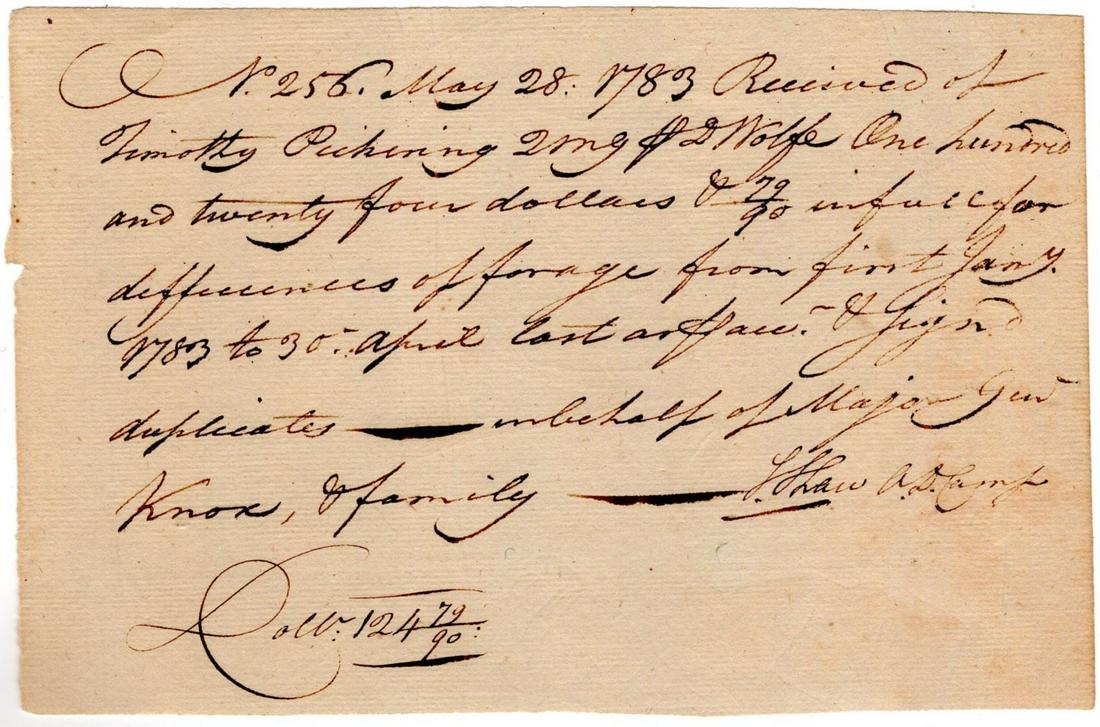 No. 256. May 28: 1783 Received of
Timothy Pickering QMG ⅌ D Wolfe One hundred
and twenty four dollars & 79/90 in full for
differences of forage from first Jany.
1783 to 30th. April last as ⅌ acct. & Signd
duplicates — in behalf of Major Genl
Knox, & family — S. Shaw A. D. Camp
Dollrs. 124 79/90: